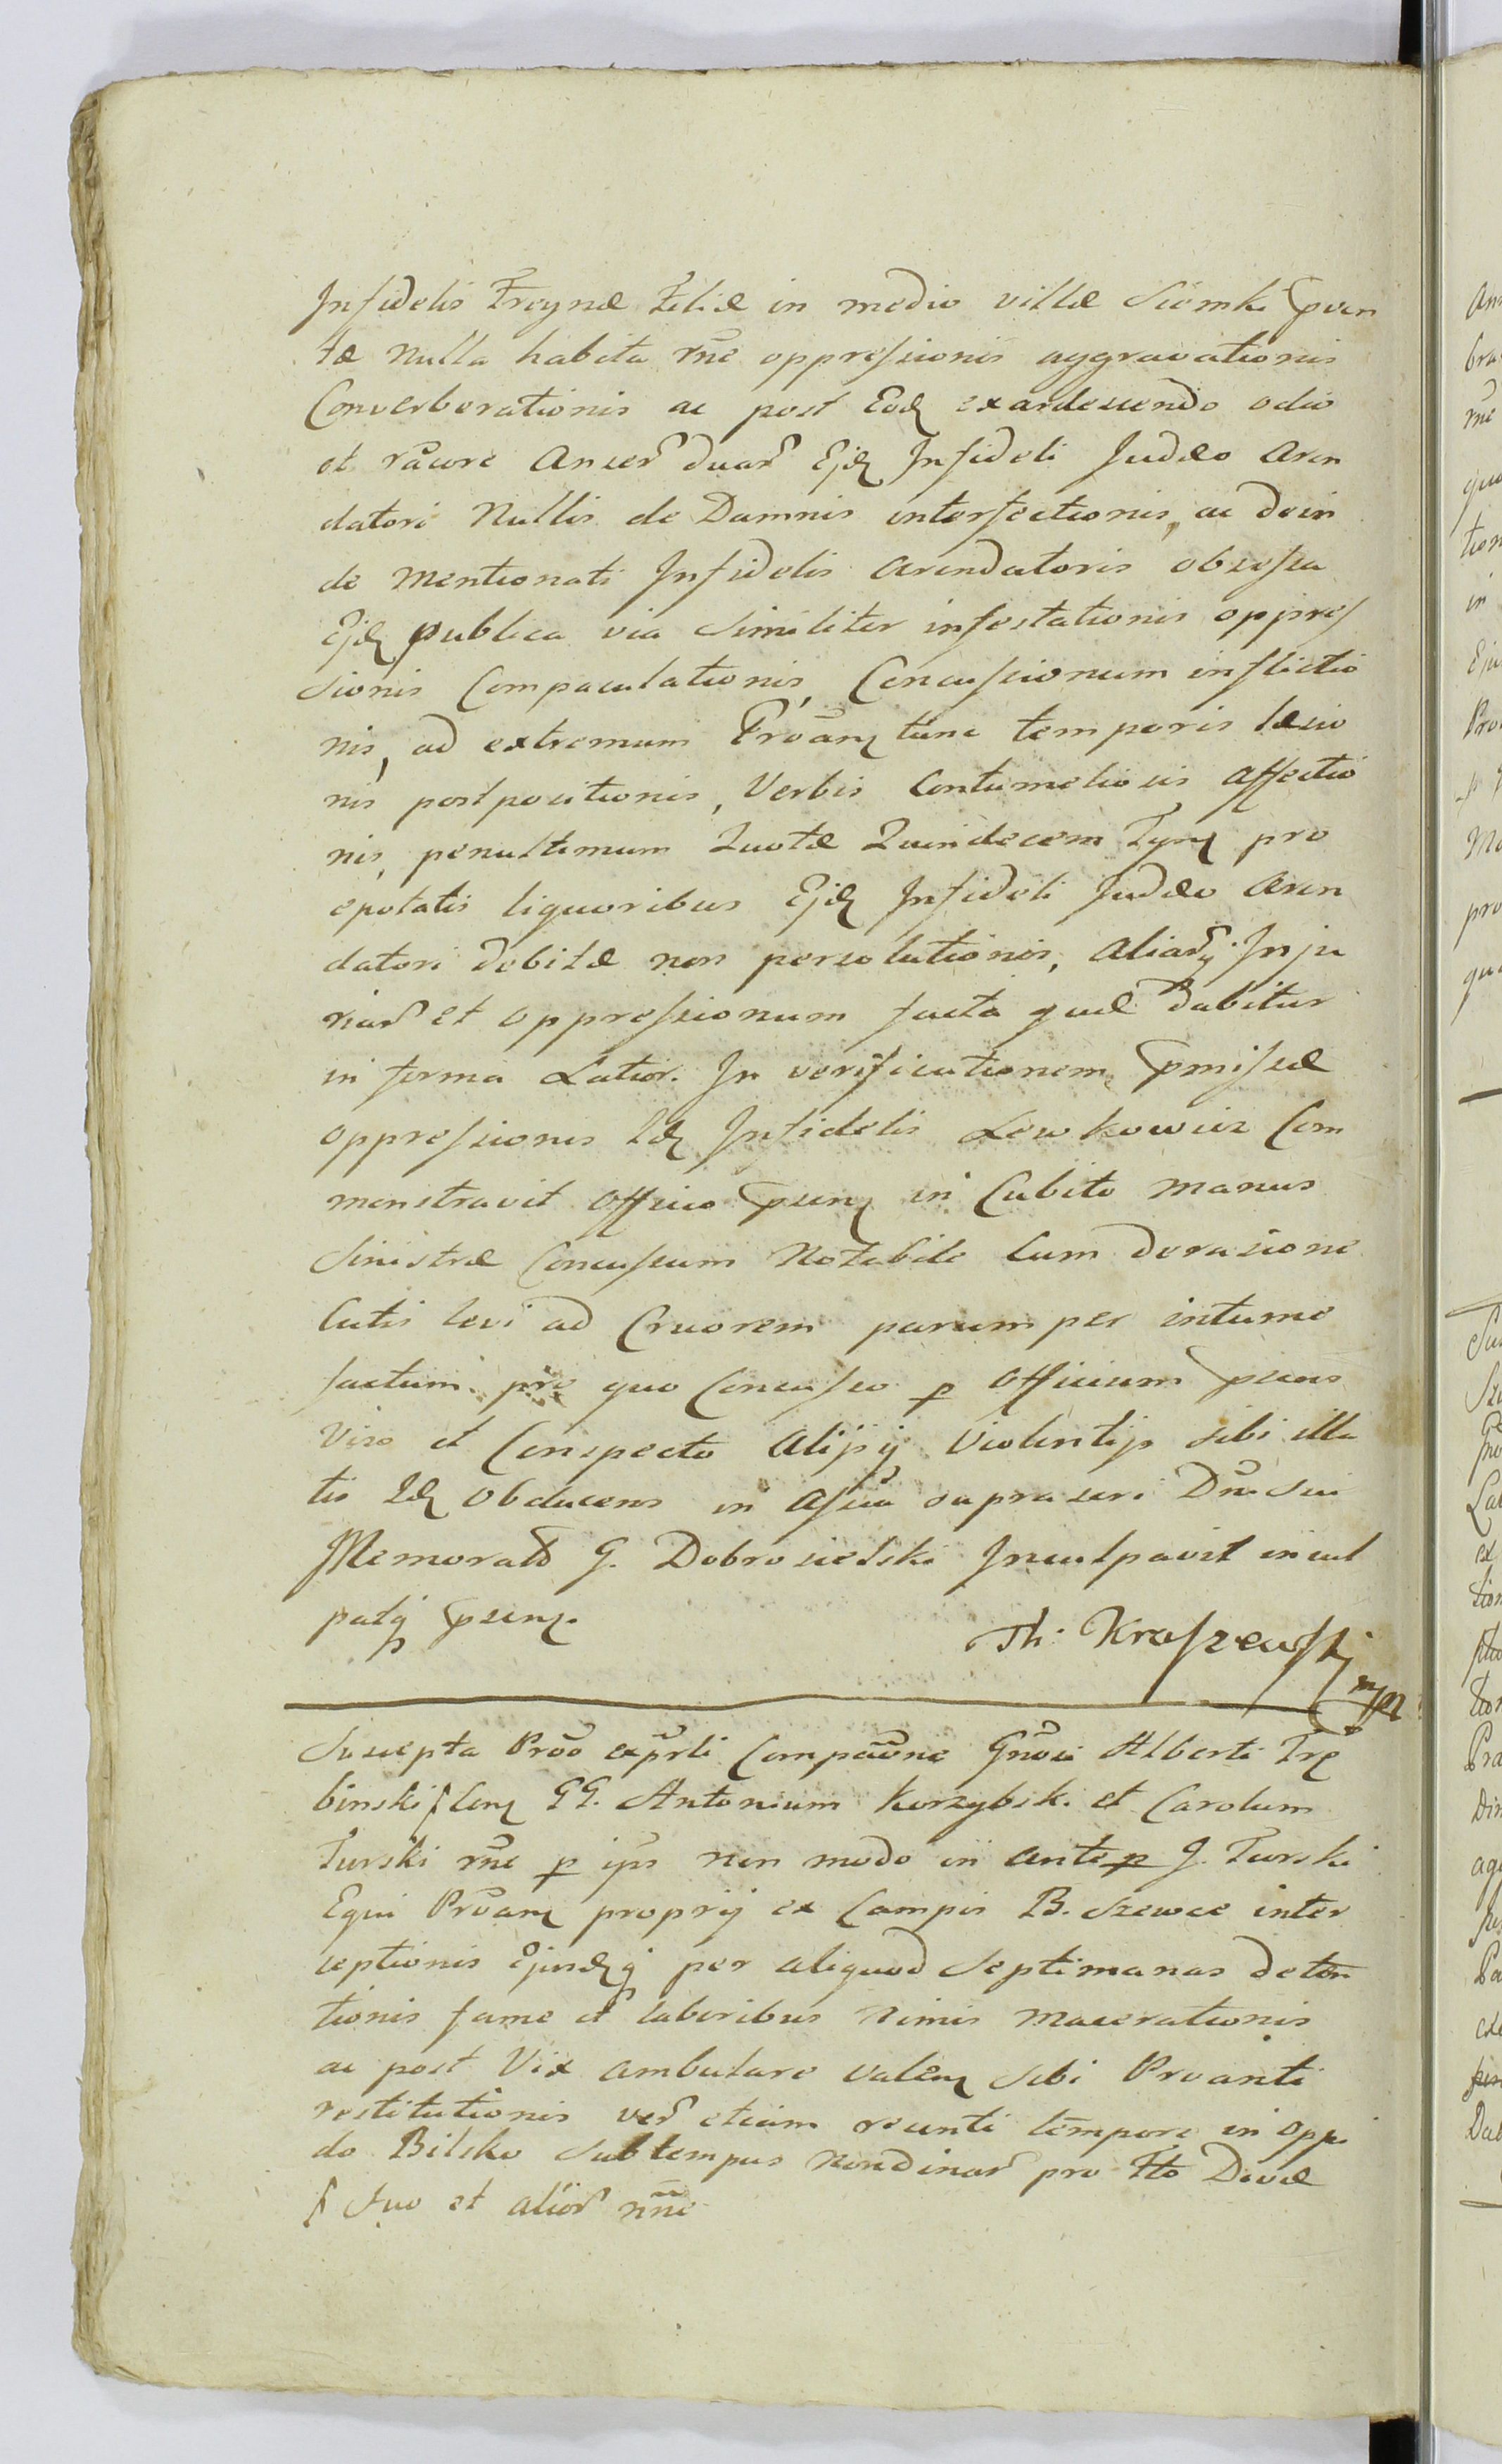 Infidelis Freynæ Filiæ in medio villæ Siemki pven
tæ Nulla habita rñe oppressionis aggravationis
Converberationis ac post Eod exardescendo odio
et rãcore Anser duar Ejd Infideli Judæo Aren
datori Nullis de Damnis interfectionis, ac dein
de Mentionati Infidelis Arendatoris obsessa
Ejd publica via Similiter infestationis oppres
sionis Compaculationis, Concussionum inflictio
nis, ad extremum Prõanz tunc temporis læsio
nis postpositionis, Verbis Contumeliosis Affectio
nis, penultimum Quotæ Quindecem Tymz pro
epotatis liquoribus Ejd Infideli Judæo Aren
datori debitæ non persolutionis, Aliarq Inju
riar et oppressionum facta quæ dabitur
in forma Latior. In verificationem pmissæ
oppressionis Id Infidelis Lewkowicz Com
monstravit Officio psenz in Cubito manus
Sinistræ Concussum Notabile Cum derasione
Cutis levi ad Cruorem parumper intume
factum. pro quo Concusso p Officium psens
Viso et Conspecto Alijsq Violentijs sibi illa
tis Id Obducens in Assia supraseri Dni Sui
Memorato G. Dobrosielski Inculpavit incul
patq psenz.
Th: Kraszewski mpp
Suscepta Prõõ exprli Compaõne Gñosi Alberti Trę
binski ſ Conz GG. Antonium Korzybski et Carolum
Turski rñe p ips non modo in Antep G. Turski
Equi Prõanz proprij ex Campis B. Szewce inter
ceptionis Ejusdq per aliquod Septimanas deten
tionis fame et laboribus nimis Macerationis
ac post Vix ambulare valenz sibi Proanti
restitutionis ver etiam recenti tempore in oppi
do Bilsko Sub tempus Nondinar pro Fto Divæ
ſ Suo et alior nñe